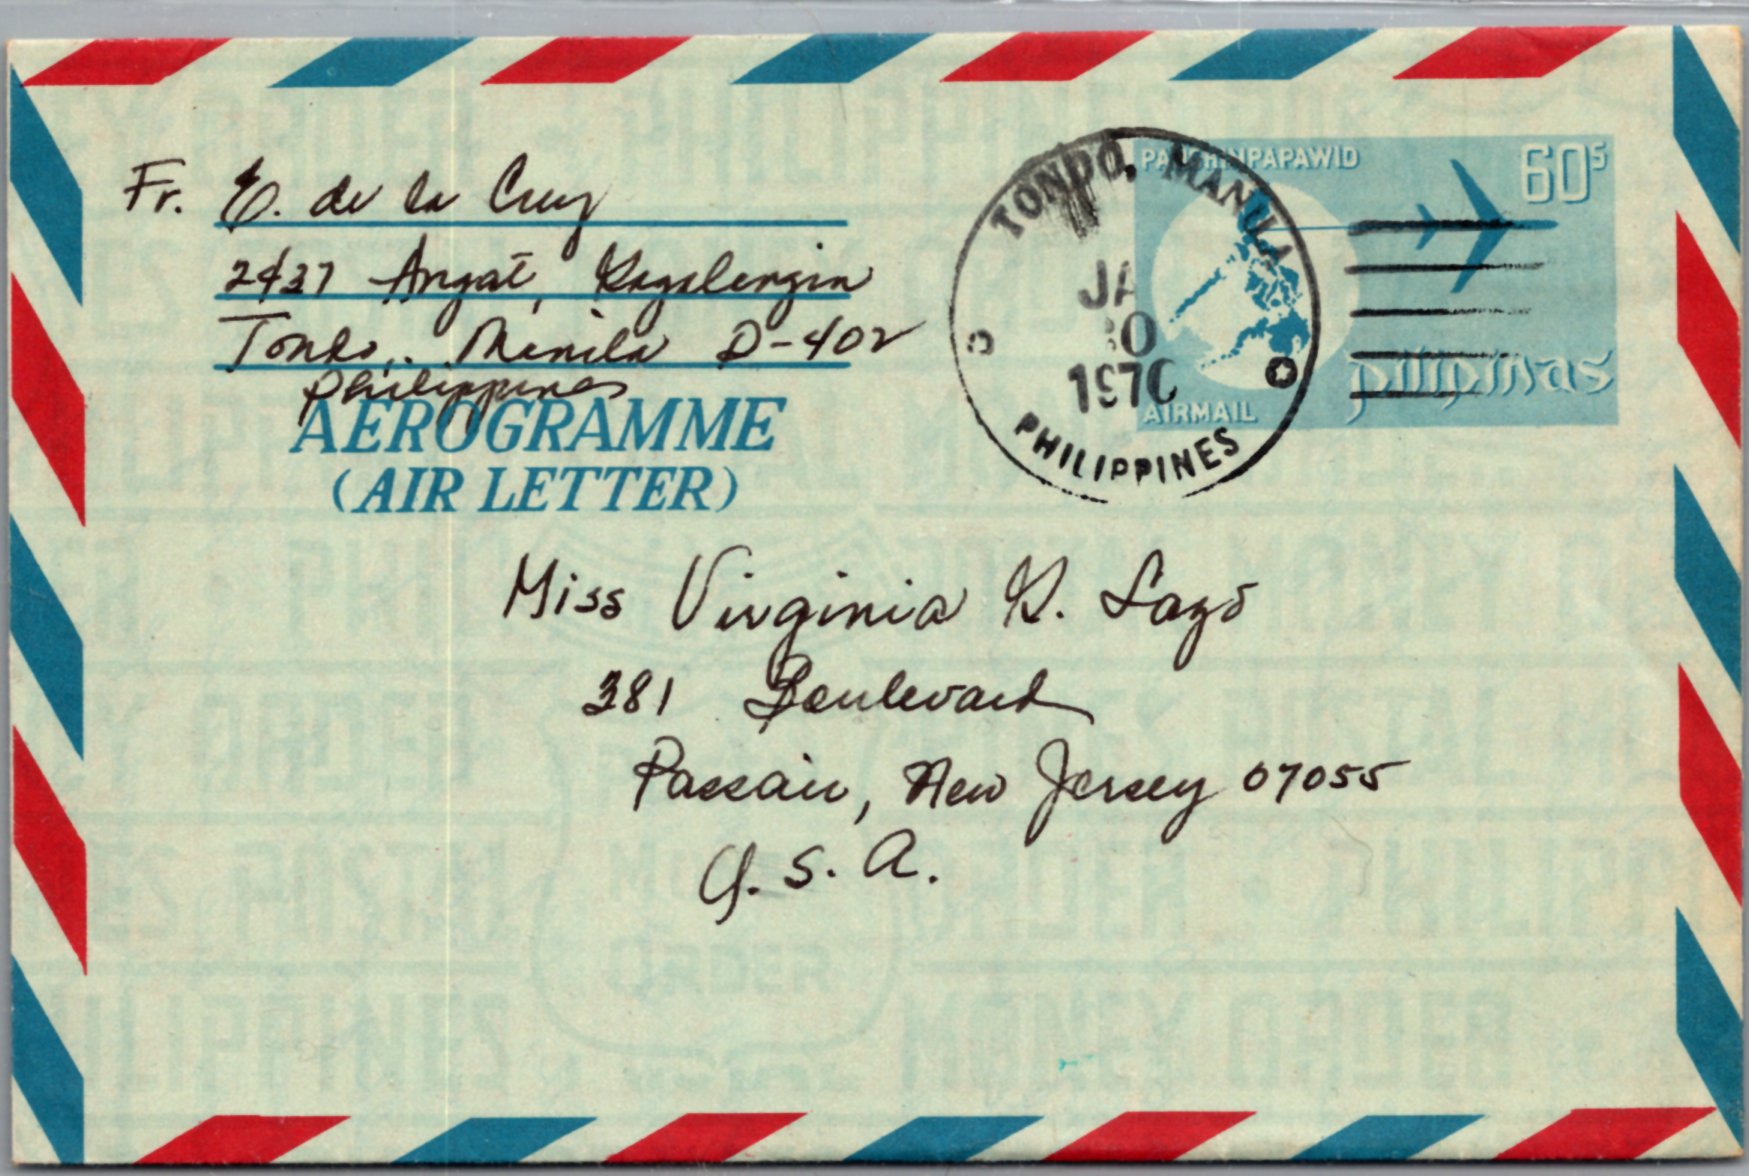 Fr. E. de la Cruz
2437 Angat, Gagalangin
Tondo, Manila D-402
Philippines
AEROGRAMME
(AIR LETTER)
TONDO, MANILA
JA
30
1970
PHILIPPINES
60s
pilipinas
AIRMAIL
Miss Virginia G. Lazo
381 Boulevard
Passaic, New Jersey 07055
U.S.A.
MONEY
ORDER